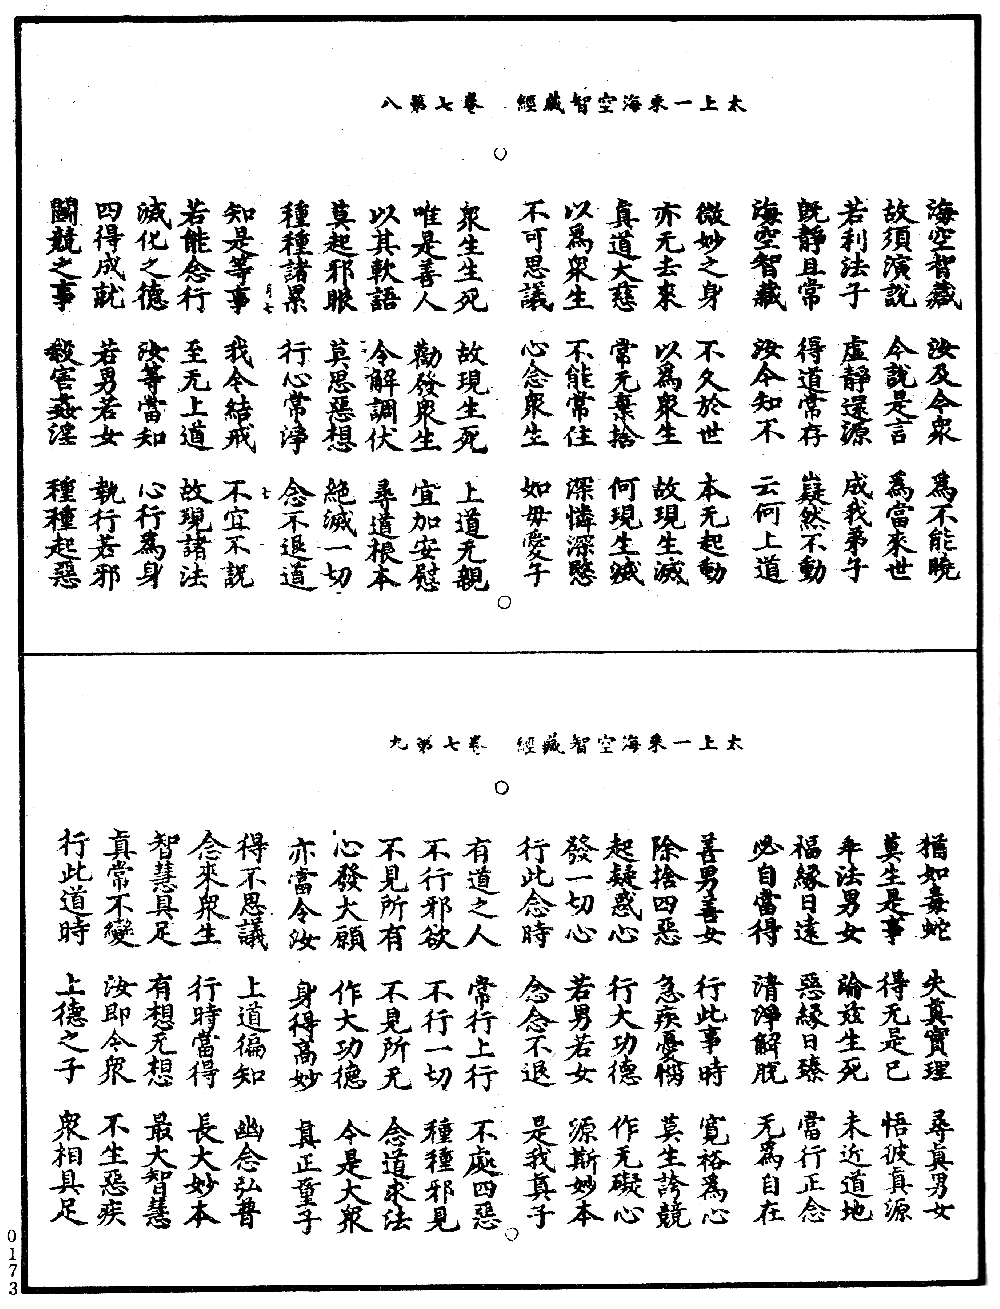 太上一乘海空智藏經 卷七第八
海空智藏 汝及今衆 為不能曉
故須演說 今說是言 為當來世
若利法子 虛靜還源 成我弟子
既靜且常 得道常存 嶷然不動
海空智藏 汝今知不 云何上道
微妙之身 不久於世 本无起動
亦无去來 以為衆生 故現生滅
真道大慈 常无棄捨 何現生滅
以為衆生 不能常住 深憐深愍
不可思議 心念衆生 如母愛子
衆生生死 故現生死 上道无親
唯是善人 勸發衆生 宜加安慰
以其軟語 令解調伏 尋道根本
莫起邪眼 莫思惡想 絕滅一切
種種諸累 行心常淨 念不退道
月七 七
知是等事 我今結戒 不宜不說
若能念行 至无上道 故現諸法
滅化之德 汝等當知 心行為身
四得成就 若男若女 執行若邪
鬭競之事 殺害姦淫 種種起惡
太上一乘海空智藏經 卷七第九
猶如毒蛇 失真實理 尋真男女
莫生是事 得无是已 悟彼真源
年法男女 論茲生死 未近道地
福緣日遠 惡緣日臻 當行正念
必自當得 清淨解脫 无為自在
善男善女 行此事時 寬裕為心
除捨四惡 急疾憂惱 莫生誇競
起疑惑心 行大功德 作无礙心
發一切心 若男若女 源斯妙本
行此念時 念念不退 是我真子
有道之人 常行上行 不處四惡
不行邪欲 不行一切 種種邪見
不見所有 不見所无 念道求法
心發大願 作大功德 令是大衆
亦當令汝 身得高妙 真正童子
得不思議 上道徧知 幽念弘普
念來衆生 行時當得 長大妙本
智慧具足 有想无想 最大智慧
真常不變 汝即今衆 不生惡疾
行此道時 上德之子 衆相具足
0173